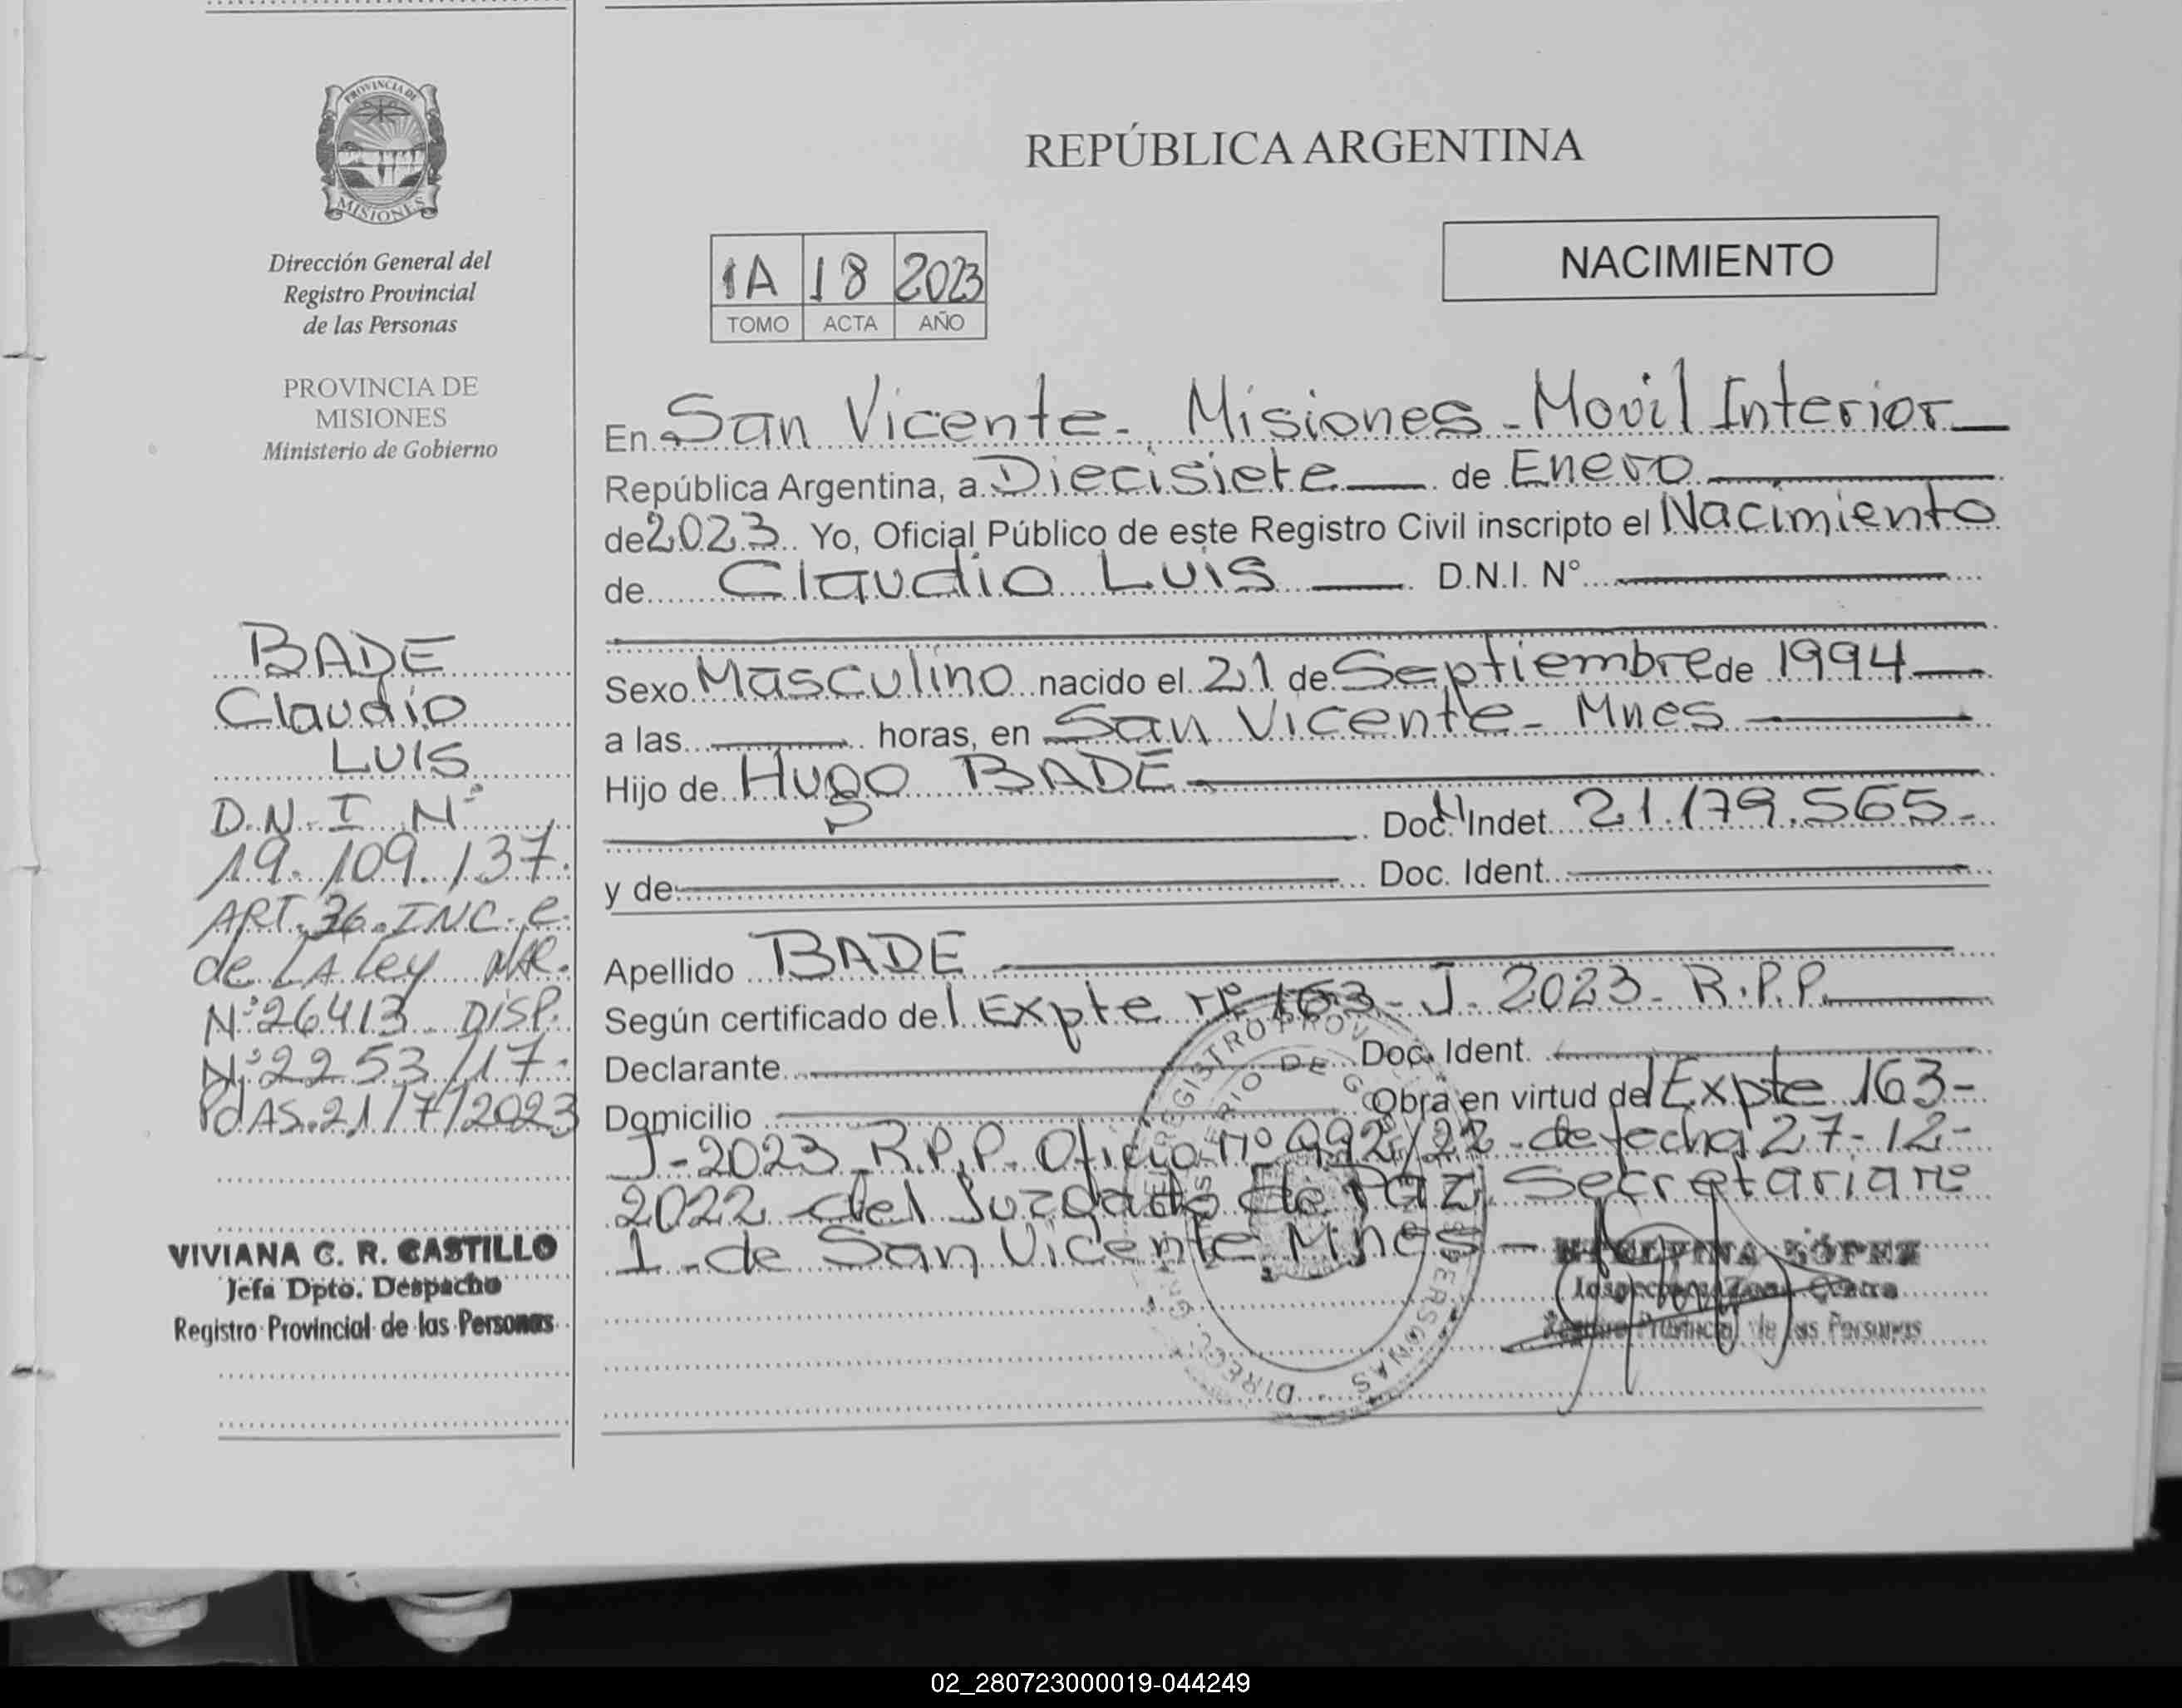 PROVINCIA DE
MISIONES
Dirección General del
Registro Provincial
de las Personas
PROVINCIA DE
MISIONES
Ministerio de Gobierno
BADE
Claudio
LUIS
D.N.I N°
19.109.137.
ART. 36. INC. e.
de LA Ley
N°26413 DISP.
N°2253/17.
PdAS.21/7/2023
VIVIANA C. R. CASTILLO
Jefa Dpto. Despacho
Registro Provincial de las Personas
REPÚBLICA ARGENTINA
1A 18 2023
TOMO ACTA AÑO
NACIMIENTO
En San Vicente - Misiones - Movil Interior
República Argentina, a Diecisiete de Enero
de 2023 Yo, Oficial Público de este Registro Civil inscripto el Nacimiento
de Claudio Luis D.N.I. N°
Sexo Masculino nacido el 21 de Septiembre de 1994
a las horas, en San Vicente - Mnes
Hijo de Hugo BADE
Doc. Indet. 21.179.565-
y de Doc. Ident.
Apellido BADE
Según certificado del Expte n° 163 - J. 2023 - R.P.P.
Declarante Doc. Ident.
Domicilio Obra en virtud del Expte 163-
J-2023 R.P.P. Oficio n° 992/22 - de fecha 27-12-
2022 del Juzgado de Paz, Secretaria n°
1 - de San Vicente Mnes -
LÓPEZ
Inspectora Zona Centro
Registro Provincial de las Personas
02_280723000019-044249